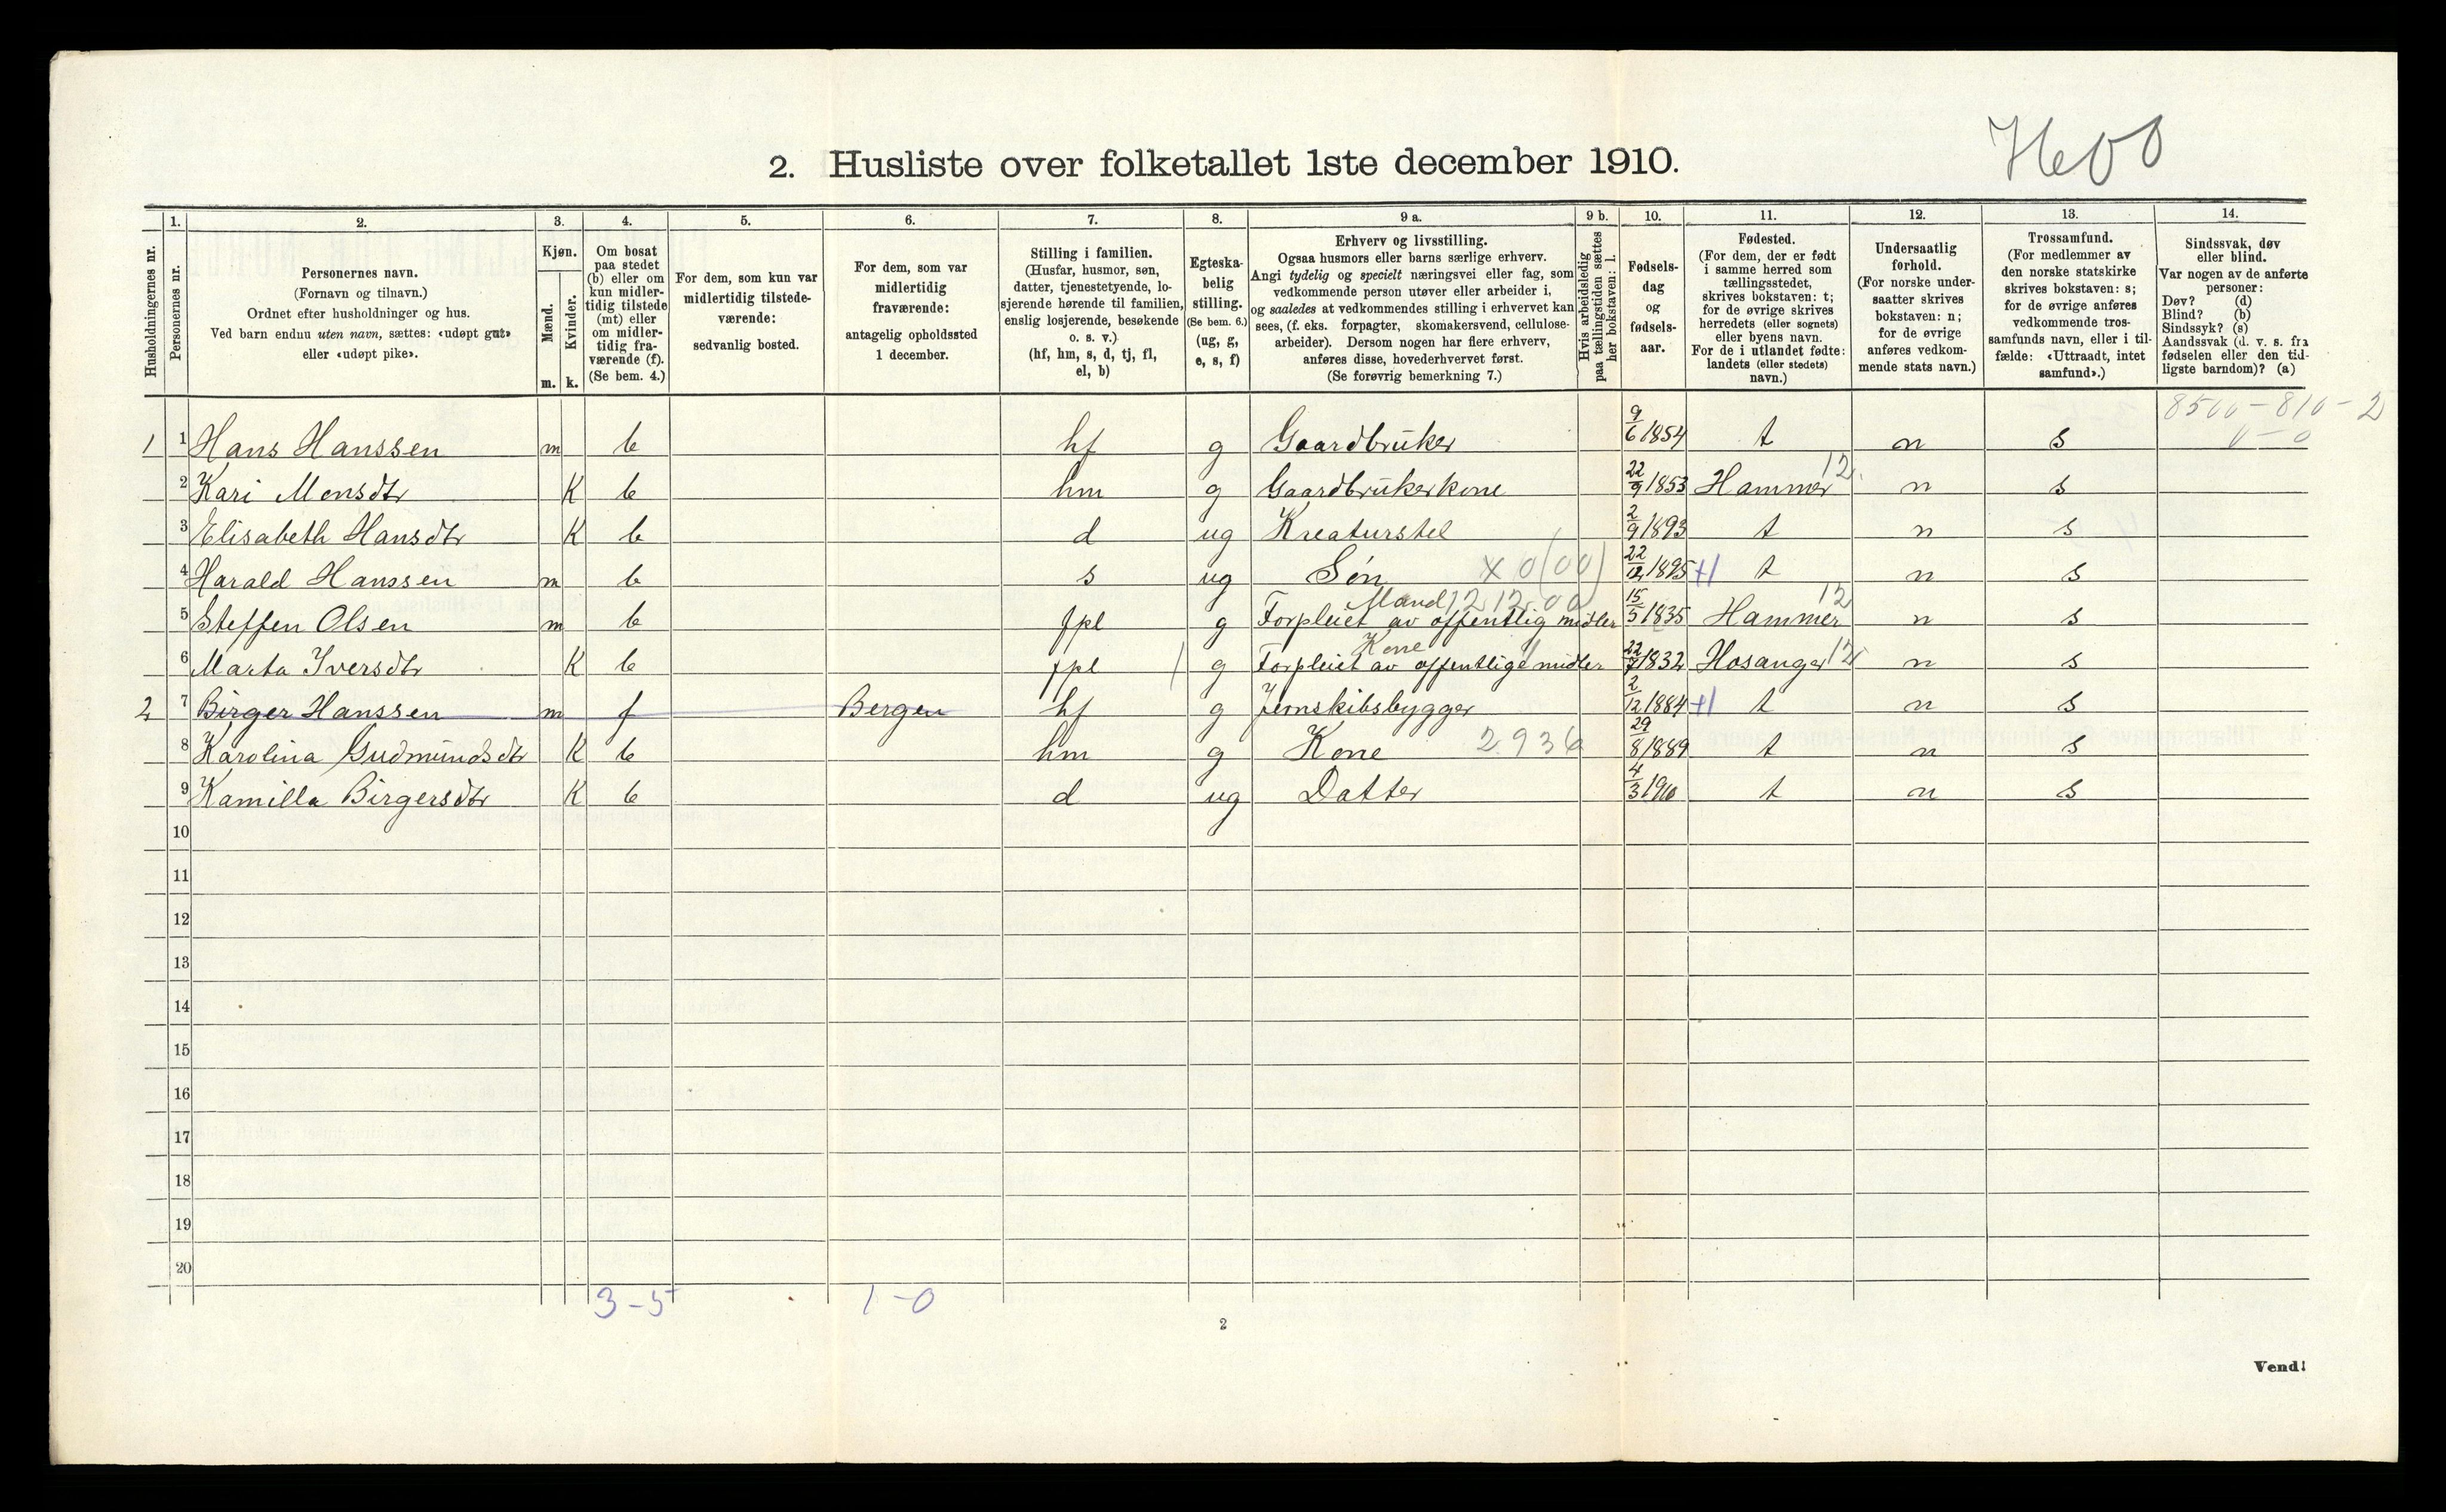 Heo0
2. Husliste over folketallet 1ste december 1910.
Husholdningernes nr.
1.
Personernes nr.
2.
Personernes navn.
(Fornavn og tilnavn.)
Ordnet efter husholdninger og hus.
Ved barn endnu uten navn, sættes: «udøpt gut»
eller «udøpt pike».
3.
Kjøn.
Mænd.
Kvinder.
m. k.
4.
Om bosat
paa stedet
(b) eller om
kun midler-
tidig tilstede
(mt) eller
om midler-
tidig fra-
værende (f).
(Se bem. 4.)
5.
For dem, som kun var
midlertidig tilstede-
værende:
sedvanlig bosted.
6.
For dem, som var
midlertidig
fraværende:
antagelig opholdssted
1 december.
7.
Stilling i familien.
(Husfar, husmor, søn,
datter, tjenestetyende, lo-
sjerende hørende til familien,
enslig losjerende, besøkende
o. s. v.)
(hf, hm, s, d, tj, fl,
el, b)
8.
Egteska-
belig
stilling.
(Se bem. 6.)
(ug, g,
e, s, f)
9 a.
Erhverv og livsstilling.
Ogsaa husmors eller barns særlige erhverv.
Angi tydelig og specielt næringsvei eller fag, som
vedkommende person utøver eller arbeider i,
og saaledes at vedkommendes stilling i erhvervet kan
sees, (f. eks. forpagter, skomakersvend, cellulose-
arbeider). Dersom nogen har flere erhverv,
anføres disse, hovederhvervet først.
(Se forøvrig bemerkning 7.)
9 b.
Hvis arbeidsledig
paa tællingstiden sættes
her bokstaven: l.
10.
Fødsels-
dag
og
fødsels-
aar.
11.
Fødested.
(For dem, der er født
i samme herred som
tællingsstedet,
skrives bokstaven: t;
for de øvrige skrives
herredets (eller sognets)
eller byens navn.
For de i utlandet fødte:
landets (eller stedets)
navn.)
12.
Undersaatlig
forhold.
(For norske under-
saatter skrives
bokstaven: n;
for de øvrige
anføres vedkom-
mende stats navn.)
13.
Trossamfund.
(For medlemmer av
den norske statskirke
skrives bokstaven: s;
for de øvrige anføres
vedkommende tros-
samfunds navn, eller i til-
fælde: «Uttraadt, intet
samfund».)
14.
Sindssvak, døv
eller blind.
Var nogen av de anførte
personer:
Døv? (d)
Blind? (b)
Sindssyk? (s)
Aandssvak (d. v. s. fra
fødselen eller den tid-
ligste barndom)? (a)
8500 - 810 - 2
0 - 0
1 1 Hans Hanssen m b hf g Gaardbruker 9/6 1854 t n s
2 Kari Monsdtr K b hm g Gaardbrukerkone 22/9 1853 Hammer 12 n s
3 Elisabeth Hansdtr K b d ug Kreaturstel 2/9 1893 t n s
4 Harald Hanssen m b s ug Søn x 0 (00) 22/12 1895 +1 t n s
Mand 12 12.00
5 Steffen Olsen m b fpl g Forpleiet av offentlig midler 15/5 1835 Hammer 12 n s
Kone
6 Marta Iversdtr K b fpl g Forpleiet av offentlige midler 22/7 1832 Hosanger 12 n s
2 7 Birger Hanssen m f Bergen hf g Jernskibsbygger 2/12 1884 +1 t n s
8 Karolina Gudmundsdtr K b hm g Kone 2936 29/8 1889 t n s
9 Kamilla Birgersdtr K b d ug Datter 4/3 1910 t n s
10
11
12
13
14
15
16
17
18
19
20
3 - 5 1 - 0
2
Vend!